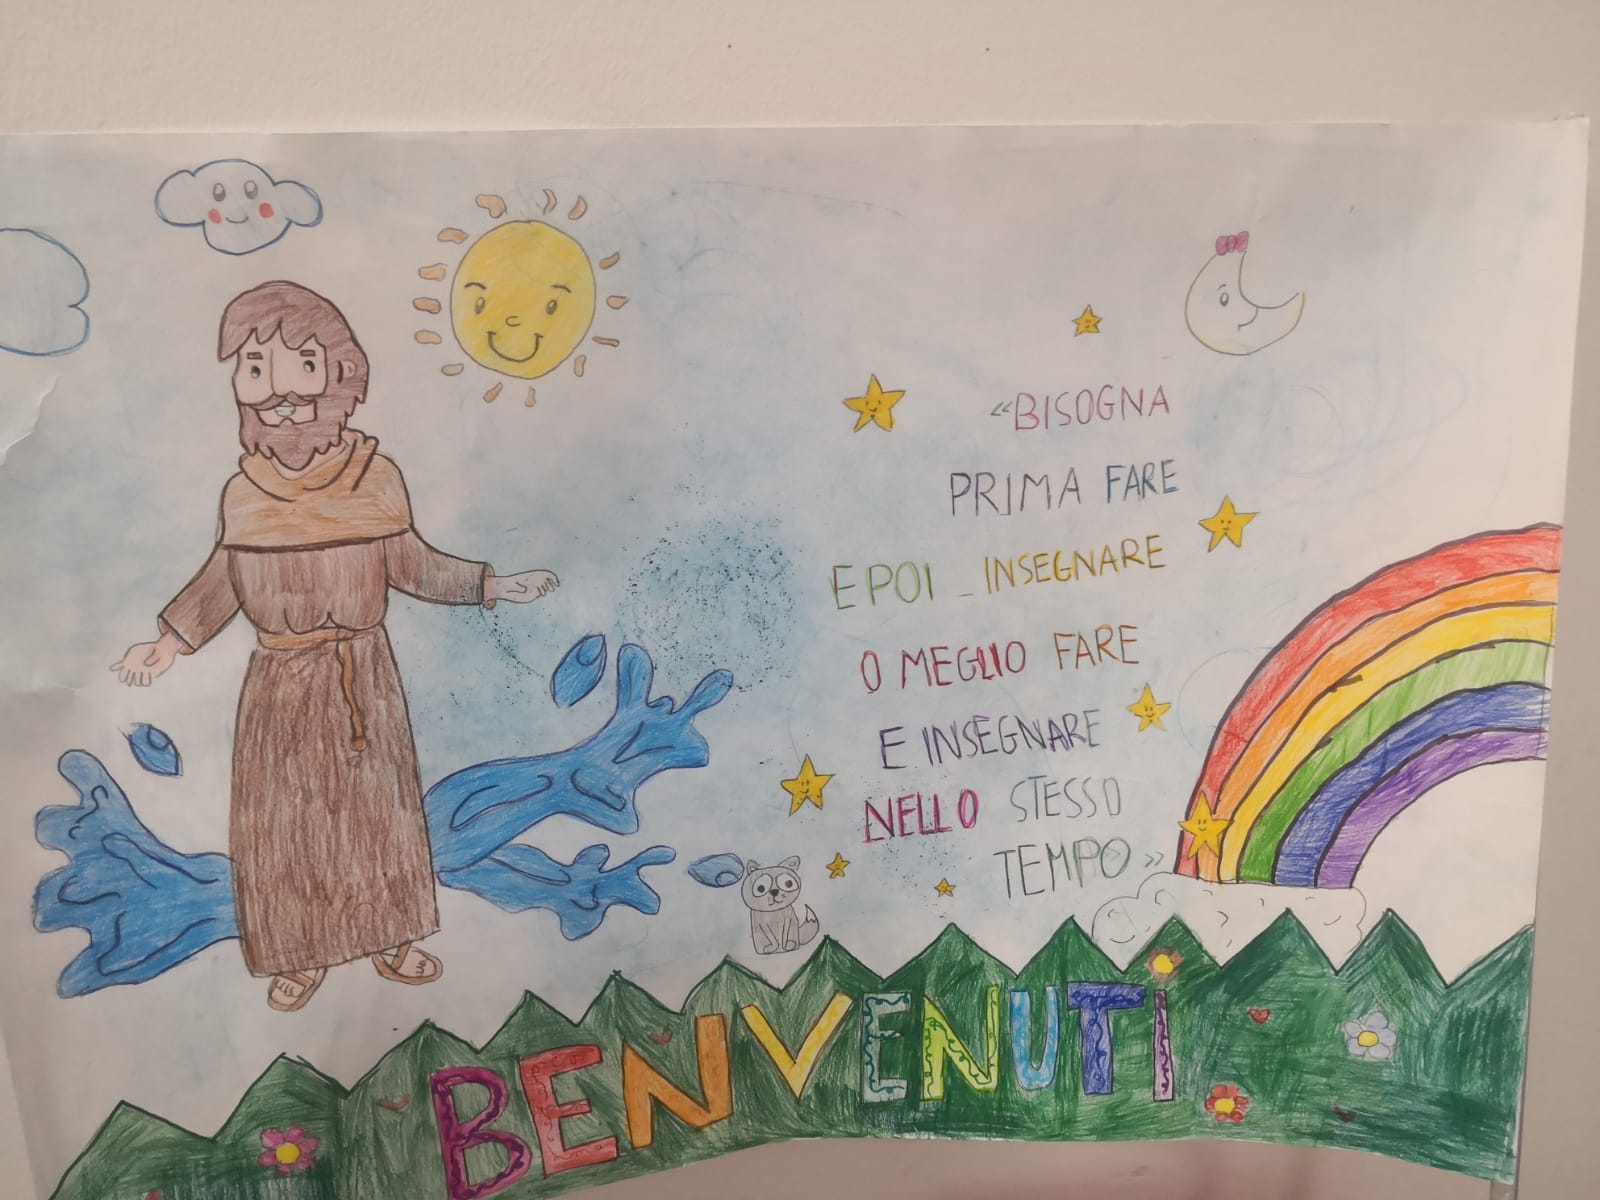 «BISOGNA
PRIMA FARE
E POI _ INSEGNARE
O MEGLIO FARE
E INSEGNARE
NELLO STESSO
TEMPO»
BENVENUTI